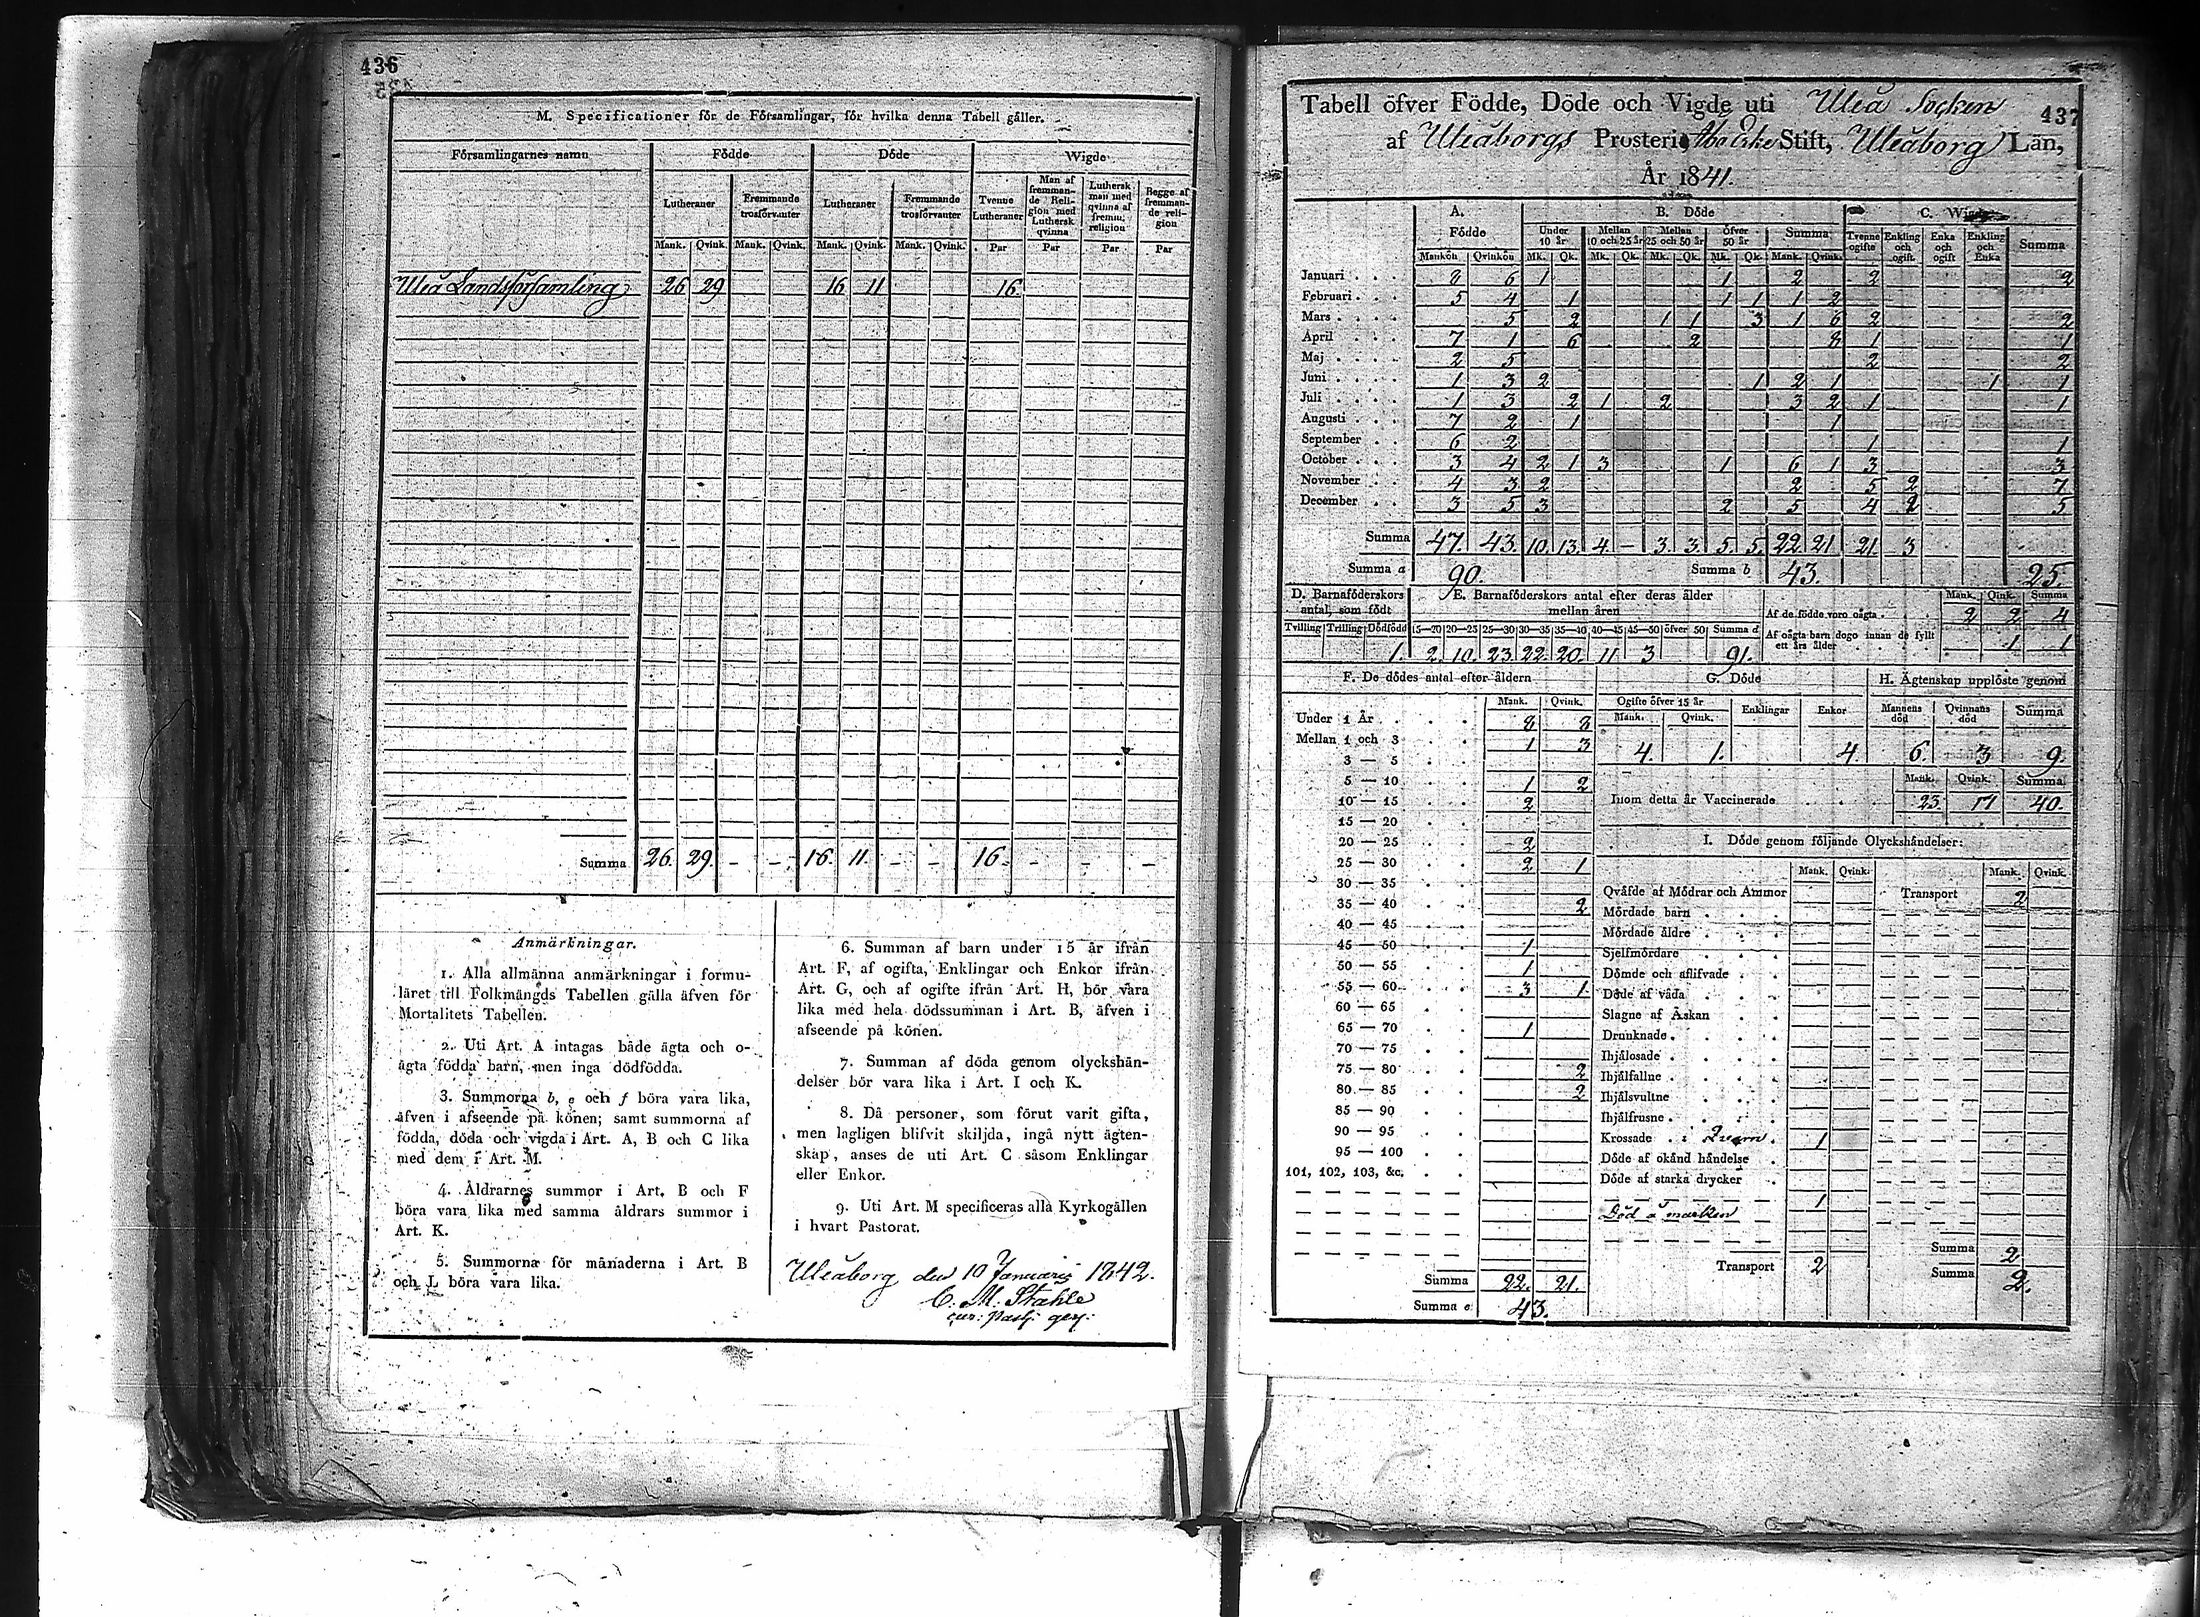 436
M. Specificationer för de Församlingar, för hvilka denna Tabell gäller.
Församlingarnes namn | Födde | Döde | Wigde
Lutheraner | Fremmande trosförvanter | Lutheraner | Fremmande trosförvanter | Tvenne Lutheraner | Man af fremmande Religion med Luthersk qvinna | Luthersk man med qvinna af fremm. religion | Begge af fremmande religion
Mank. Qvink. Mank. Qvink. Mank. Qvink. Mank. Qvink. Par Par Par Par
Uleå Landsförsamling 26 29 16 11 16
Summa 26. 29. - - 16. 11. - - 16. - - -
Anmärkningar.
1. Alla allmänna anmärkningar i formu-
läret till Folkmängds Tabellen gälla äfven för
Mortalitets Tabellen.
2. Uti Art. A intagas både ägta och o-
ägta födda barn, men inga dödfödda.
3. Summorna b, e och f böra vara lika,
äfven i afseende på könen; samt summorna af
födda, döda och vigda i Art. A, B och C lika
med dem i Art. M.
4. Åldrarnes summor i Art. B och F
böra vara lika med samma åldrars summor i
Art. K.
5. Summorna för månaderna i Art. B
och L böra vara lika.
6. Summan af barn under 15 år ifrån
Art. F, af ogifta, Enklingar och Enkor ifrån
Art. G, och af ogifte ifrån Art. H, bör vara
lika med hela dödssumman i Art. B, äfven i
afseende på könen.
7. Summan af döda genom olyckshän-
delser bör vara lika i Art. I och K.
8. Då personer, som förut varit gifta,
men lagligen blifvit skiljda, ingå nytt ägten-
skap, anses de uti Art. C såsom Enklingar
eller Enkor.
9. Uti Art. M specificeras alla Kyrkogällen
i hvart Pastorat.
Uleåborg den 10 Januarii 1842.
C. M. Ståhle
437
Tabell öfver Födde, Döde och Vigde uti Uleå Socken
af Uleåborgs Prosteri Åbo Erke Stift, Uleåborg Län,
År 1841.
A. Födde | B. Döde | C. Wigde
Under 10 år | Mellan 10 och 25 år | Mellan 25 och 50 år | Öfver 50 år | Summa | Tvenne ogifte | Enkling och ogift. | Enka och ogift | Enkling och Enka | Summa
Mankön Qvinkön Mk. Qk. Mk. Qk. Mk. Qk. Mk. Qk. Mank. Qvink.
Januari 8 6 1 1 2 2 2
Februari 5 4 1 1 1 1 2
Mars 5 2 1 1 3 1 6 2 2
April 7 1 6 2 8 1 1
Maj 2 5 2 2
Juni 1 3 2 1 2 1 1 1
Juli 1 3 2 1 2 3 2 1 1
Augusti 7 2 1 1
September 6 2 1 1
October 3 4 2 1 3 1 6 1 3 3
November 4 3 2 2 5 2 7
December 3 5 3 2 5 4 5
Summa 47. 43. 10. 13. 4. - 3. 3. 5. 5. 22. 21 21. 3
Summa a 90. Summa b 43. 25.
D. Barnaföderskors antal, som födt
Tvilling Trilling Dödfödd
1.
E. Barnaföderskors antal efter deras ålder mellan åren
15—20 20—25 25—30 30—35 35—40 40—45 45—50 öfver 50 Summa d
2. 10. 23. 22. 20. 11 3 91.
Mank. Qink. Summa
Af de födde voro oägta 2 2 4
Af oägta barn dogo innan de fyllt
ett års ålder 1 1
F. De dödes antal efter åldern
Mank. Qvink.
Under 1 År 8 8
Mellan 1 och 3 1 3
3 — 5
5 — 10 1 2
10 — 15 2
15 — 20
20 — 25 2
25 — 30 2 1
30 — 35
35 — 40 2
40 — 45
45 — 50 1
50 — 55 1
55 — 60 3 1
60 — 65
65 — 70 1
70 — 75
75 — 80 2
80 — 85 2
85 — 90
90 — 95
95 — 100
101, 102, 103, &c.
Summa 22. 21.
Summa e 43.
G. Döde
Ogifte öfver 15 år | Enklingar | Enkor
Mank. Qvink.
4. 1. 4.
H. Ägtenskap upplöste genom
Mannens död | Qvinnans död | Summa
6. 3 9.
Mank. Qvink. Summa
Inom detta år Vaccinerade 23. 17 40.
I. Döde genom följande Olyckshändelser:
Mank. Qvink. Mank. Qvink.
Qväfde af Mödrar och Ammor Transport 2
Mördade barn
Mördade äldre
Sjelfmördare
Dömde och aflifvade
Döde af våda
Slagne af Åskan
Drunknade
Ihjälosade
Ihjälfallne
Ihjälsvultne
Ihjälfrusne
Krossade i Qvarn 1
Döde af okänd händelse
Döde af starka drycker
Död å marken 1
Transport 2
Summa 2
Summa 2.